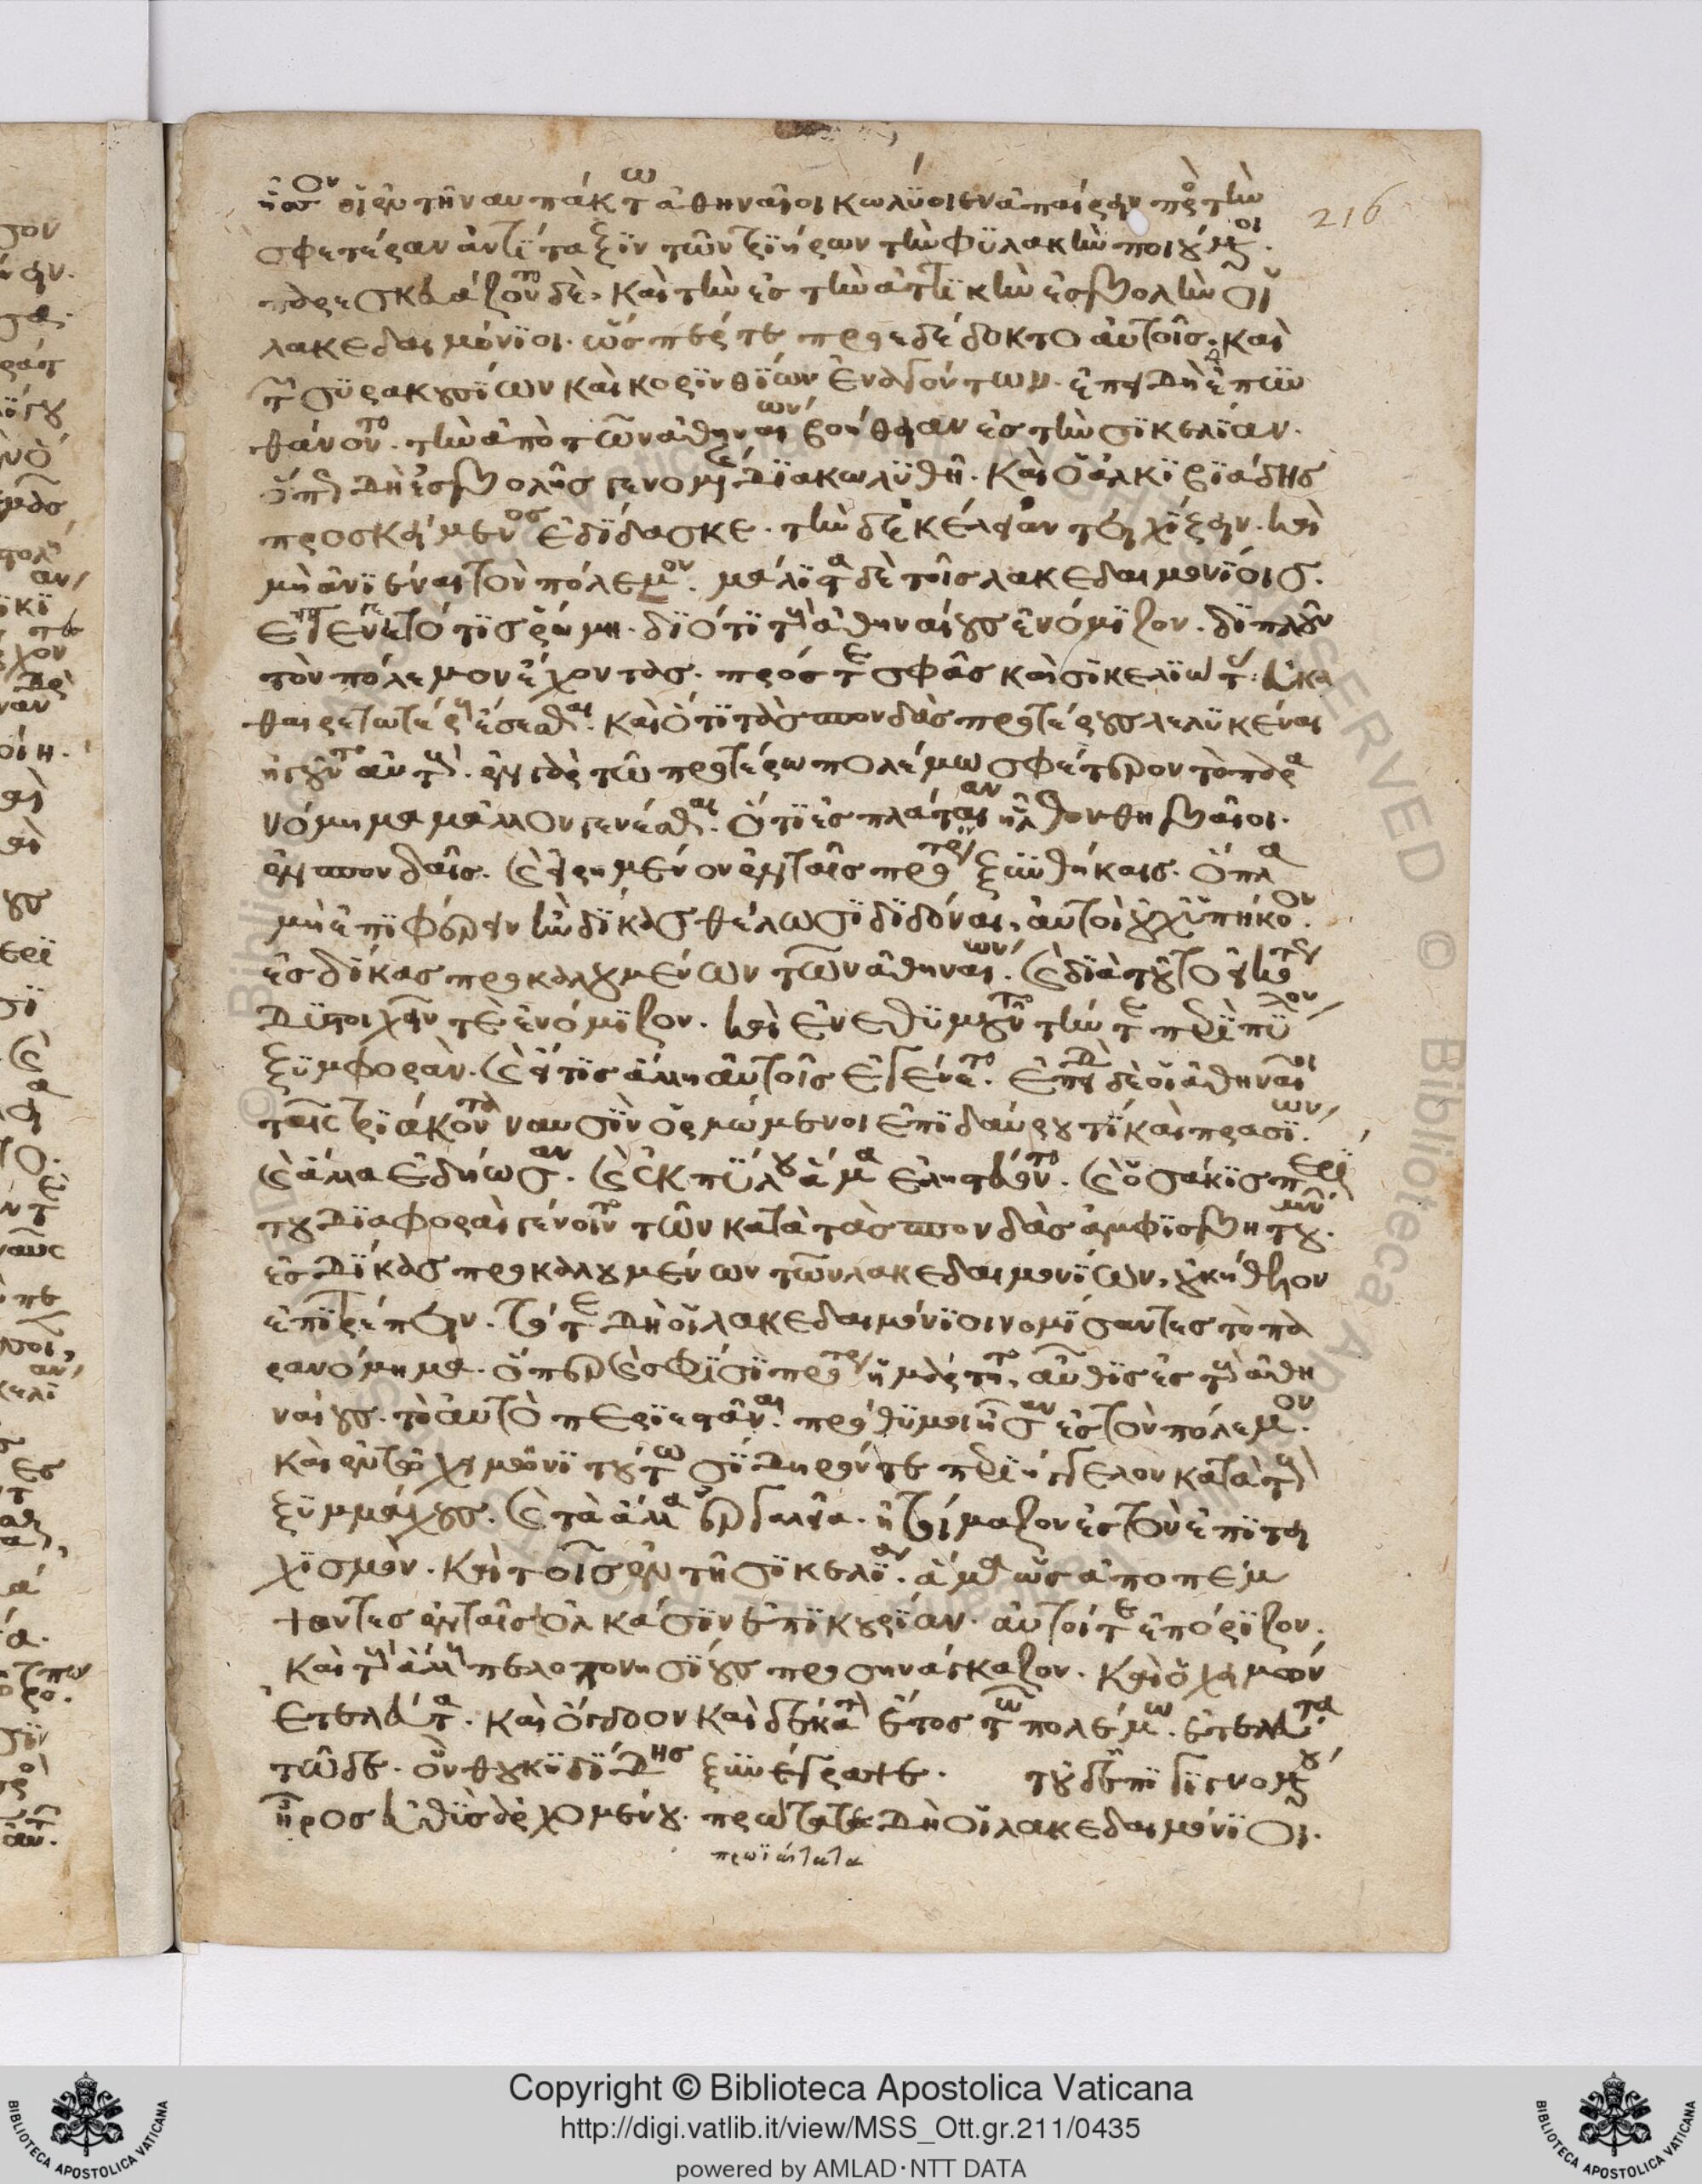 ἧσσον οἱ ἐν τῇ ναυπάκτω ἀθηναῖοι κωλύοιεν ἀπαίρειν πρὸς τὴν
σφετέραν ἀντίταξιν τῶν τριήρων τὴν φυλακὴν ποιούμενοι.
παρεσκευάζοντο δὲ, καὶ τὴν ἐς τὴν ἀττικὴν ἐσβολὴν οἱ
λακεδαιμόνιοι. ὥσπέρ τε προεδέδοκτο αὐτοῖς. καὶ
τῶν συρακουσίων καὶ κορινθίων ἐναγόντων. ἐπειδὴ ἐπυν
θάνοντο. τὴν ἀπὸ τῶν ἀθηναίων βοήθειαν ἐς τὴν σικελίαν.
ὅπως δὴ ἐσβολῆς γενομένης διακωλυθῆ. καὶ ὁ ἀλκιβιάδης
προσκείμενος ἐδίδασκε. τὴν δεκέλειαν τειχίζειν. καὶ
μὴ ἀνιέναι τὸν πόλεμον. μάλιστα δὲ τοῖς λακεδαιμονίοις.
ἐγεγένητό τις ῥώμη. διότι τοὺς ἀθηναίους ἐνόμιζον. διπλοῦν
τὸν πόλεμον ἔχοντας. πρός τε σφᾶς καὶ σικελιώτας εὐκα
θαιρετωτέρους ἔσεσθαι. καὶ ὅτι τὰς σπονδὰς προτέρους λελυκέναι
ἡγοῦντο αὐτούς. ἐν γὰρ τῶ προτέρω πολέμω σφέτερον τὸ παρα
νόμημα μᾶλλον γενέσθαι. ὅτι ἐς πλάταιαν ἦλθον θηβαῖοι.
ἐν σπονδαῖς. καὶ εἰρημένον ἐν ταῖς πρότερον ξυνθήκαις. ὅπλα
μὴ ἐπιφέρειν ἢν δίκας θέλωσι διδόναι, αὐτοὶ οὐχ ὑπήκουον.
ἐς δίκας προκαλουμένων τῶν ἀθηναίων. καὶ διὰ τοῦτο εἰκότως
δυστυχεῖν τε ἐνόμιζον. καὶ ἐνεθυμοῦντο τήν τε περὶ πύλον
ξυμφοράν. καὶ εἴ τις ἄλλη αὐτοῖς ἐγένετο. ἐπειδὴ δὲ οἱ ἀθηναῖοι
ταῖς τριάκοντα ναυσὶν ὁρμώμενοι ἐπιδαύρου τί καὶ πρασιῶν.
καὶ ἄλλα ἐδήωσαν. καὶ ἐκ πύλου ἅμα ἐληστεύοντο. καὶ ὁσάκις περί
του διαφοραὶ γένοιντο τῶν κατὰ τὰς σπονδὰς ἀμφισβητουμένων.
ἐς δίκας προκαλουμένων τῶν λακεδαιμονίων, οὐκ ἤθελον
ἐπιτρέπειν. τότε δὴ οἱ λακεδαιμόνιοι νομίσαντες τὸ πα
ρανόμημα. ὅπερ καὶ σφίσι πρότερον ἡμάρτητο, αὖθις ἐς τοὺς ἀθη
ναίους. τὸ αὐτὸ περιεστάναι. πρόθυμοι ἦσαν ἐς τὸν πόλεμον.
καὶ ἐν τῶ χειμῶνι τούτω σίδηρόν τε περιήγγελον κατὰ τοὺς
ξυμμάχους. καὶ τὰ ἄλλα ἐργαλεῖα. ἡτοίμαζον ἐς τὸν ἐπιτει
χισμόν. καὶ τοῖς ἐν τῇ σικελία. ἅμα ὡς ἀποπέμ
ψοντες ἐν ταῖς ὁλκάσιν ἐπικουρίαν. αὐτοί τε ἐπόριζον.
καὶ τοὺς ἄλλους πελοποννησίους προσηνάγκαζον. καὶ ὁ χειμὼν
ἐτελεύτα. καὶ ὄγδοον καὶ δέκατον ἔτος τῶ πολέμω. ἐτελεύτα
τῶδε. ὃν θουκυδίδης ξυνέγραψε. τοῦ δ' ἐπιγιγνομένου
ἦρος εὐθὺς ἀρχομένου. πρώτατα δὴ οἱ λακεδαιμόνιοι.
πρωϊαίτατα
216
Copyright © Biblioteca Apostolica Vaticana
http://digi.vatlib.it/view/MSS_Ott.gr.211/0435
powered by AMLAD·NTT DATA
BIBLIOTECA APOSTOLICA VATICANA
BIBLIOTECA APOSTOLICA VATICANA